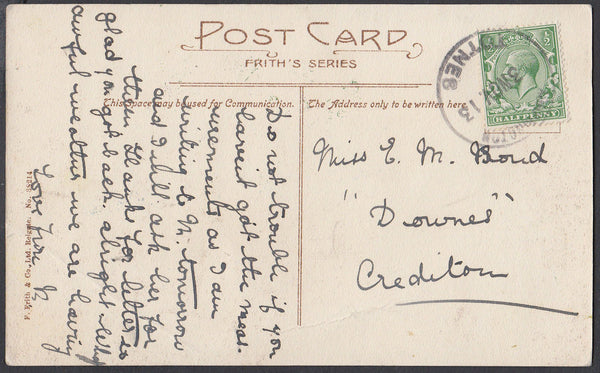 POST CARD
FRITH'S SERIES
This Space may be used for Communication.
The Address only to be written here.
Do not trouble if you
havent got the meas-
urements as I am
writing to M. tomorrow
and I will ask her for
them. Thanks for letter so
glad you got back alright. What
awful weather we are having
Love from
Miss E. M. Bond
"Downes"
Crediton
HALFPENNY
TOTNES
13
F. Frith & Co., Ltd., Reigate. No.